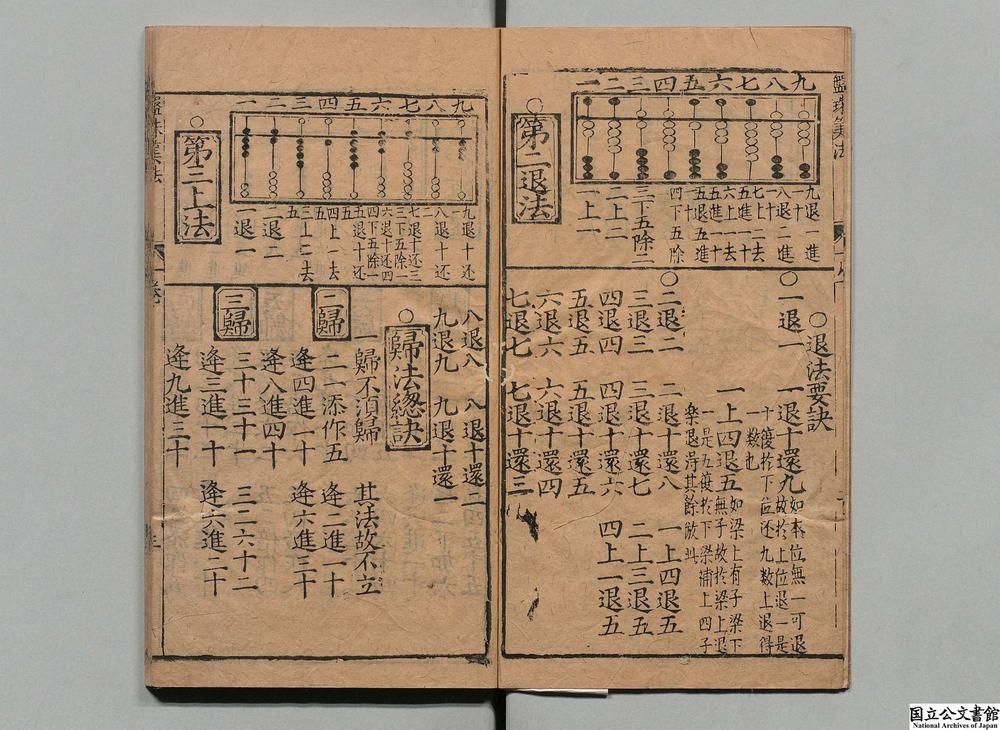 盤珠算法
九八七六五四三二一
九退一進一十
八退二進一十
七上二去五進一十
六上一去五進一十
五退五進一十
四下五除一
三下五除二
二上二
一上一
○第二退法
○退法要訣
○一退一　一退十還九
如本位無一可退
故於上位退一是
十復於下位还九數上退得
一數也
一上四退五
如梁上有子梁下
無子故於梁上退
一是五復於下梁補上四子
退得其餘放此
○二退二　二退十還八　一上四退五
三退三　三退十還七　二上三退五
四退四　四退十還六　四上一退五
五退五　五退十還五
六退六　六退十還四
七退七　七退十還三
九八七六五四三二一
九退十还一
八退十还二
七退十还三
三下五除
六退十还四
四下五除一
五退十还五
四上一去五
三上二去五
二退二
一退一
○第三上法
八退八　八退十還二
九退九　九退十還一
○歸法總訣
一歸不須歸　其法故不立
二歸　二一添作五　逢二進一十
逢四進二十　逢六進三十
逢八進四十
三歸　三一三十一　三二六十二
逢三進一十　逢六進二十
逢九進三十
盤珠算法
国立公文書館
National Archives of Japan